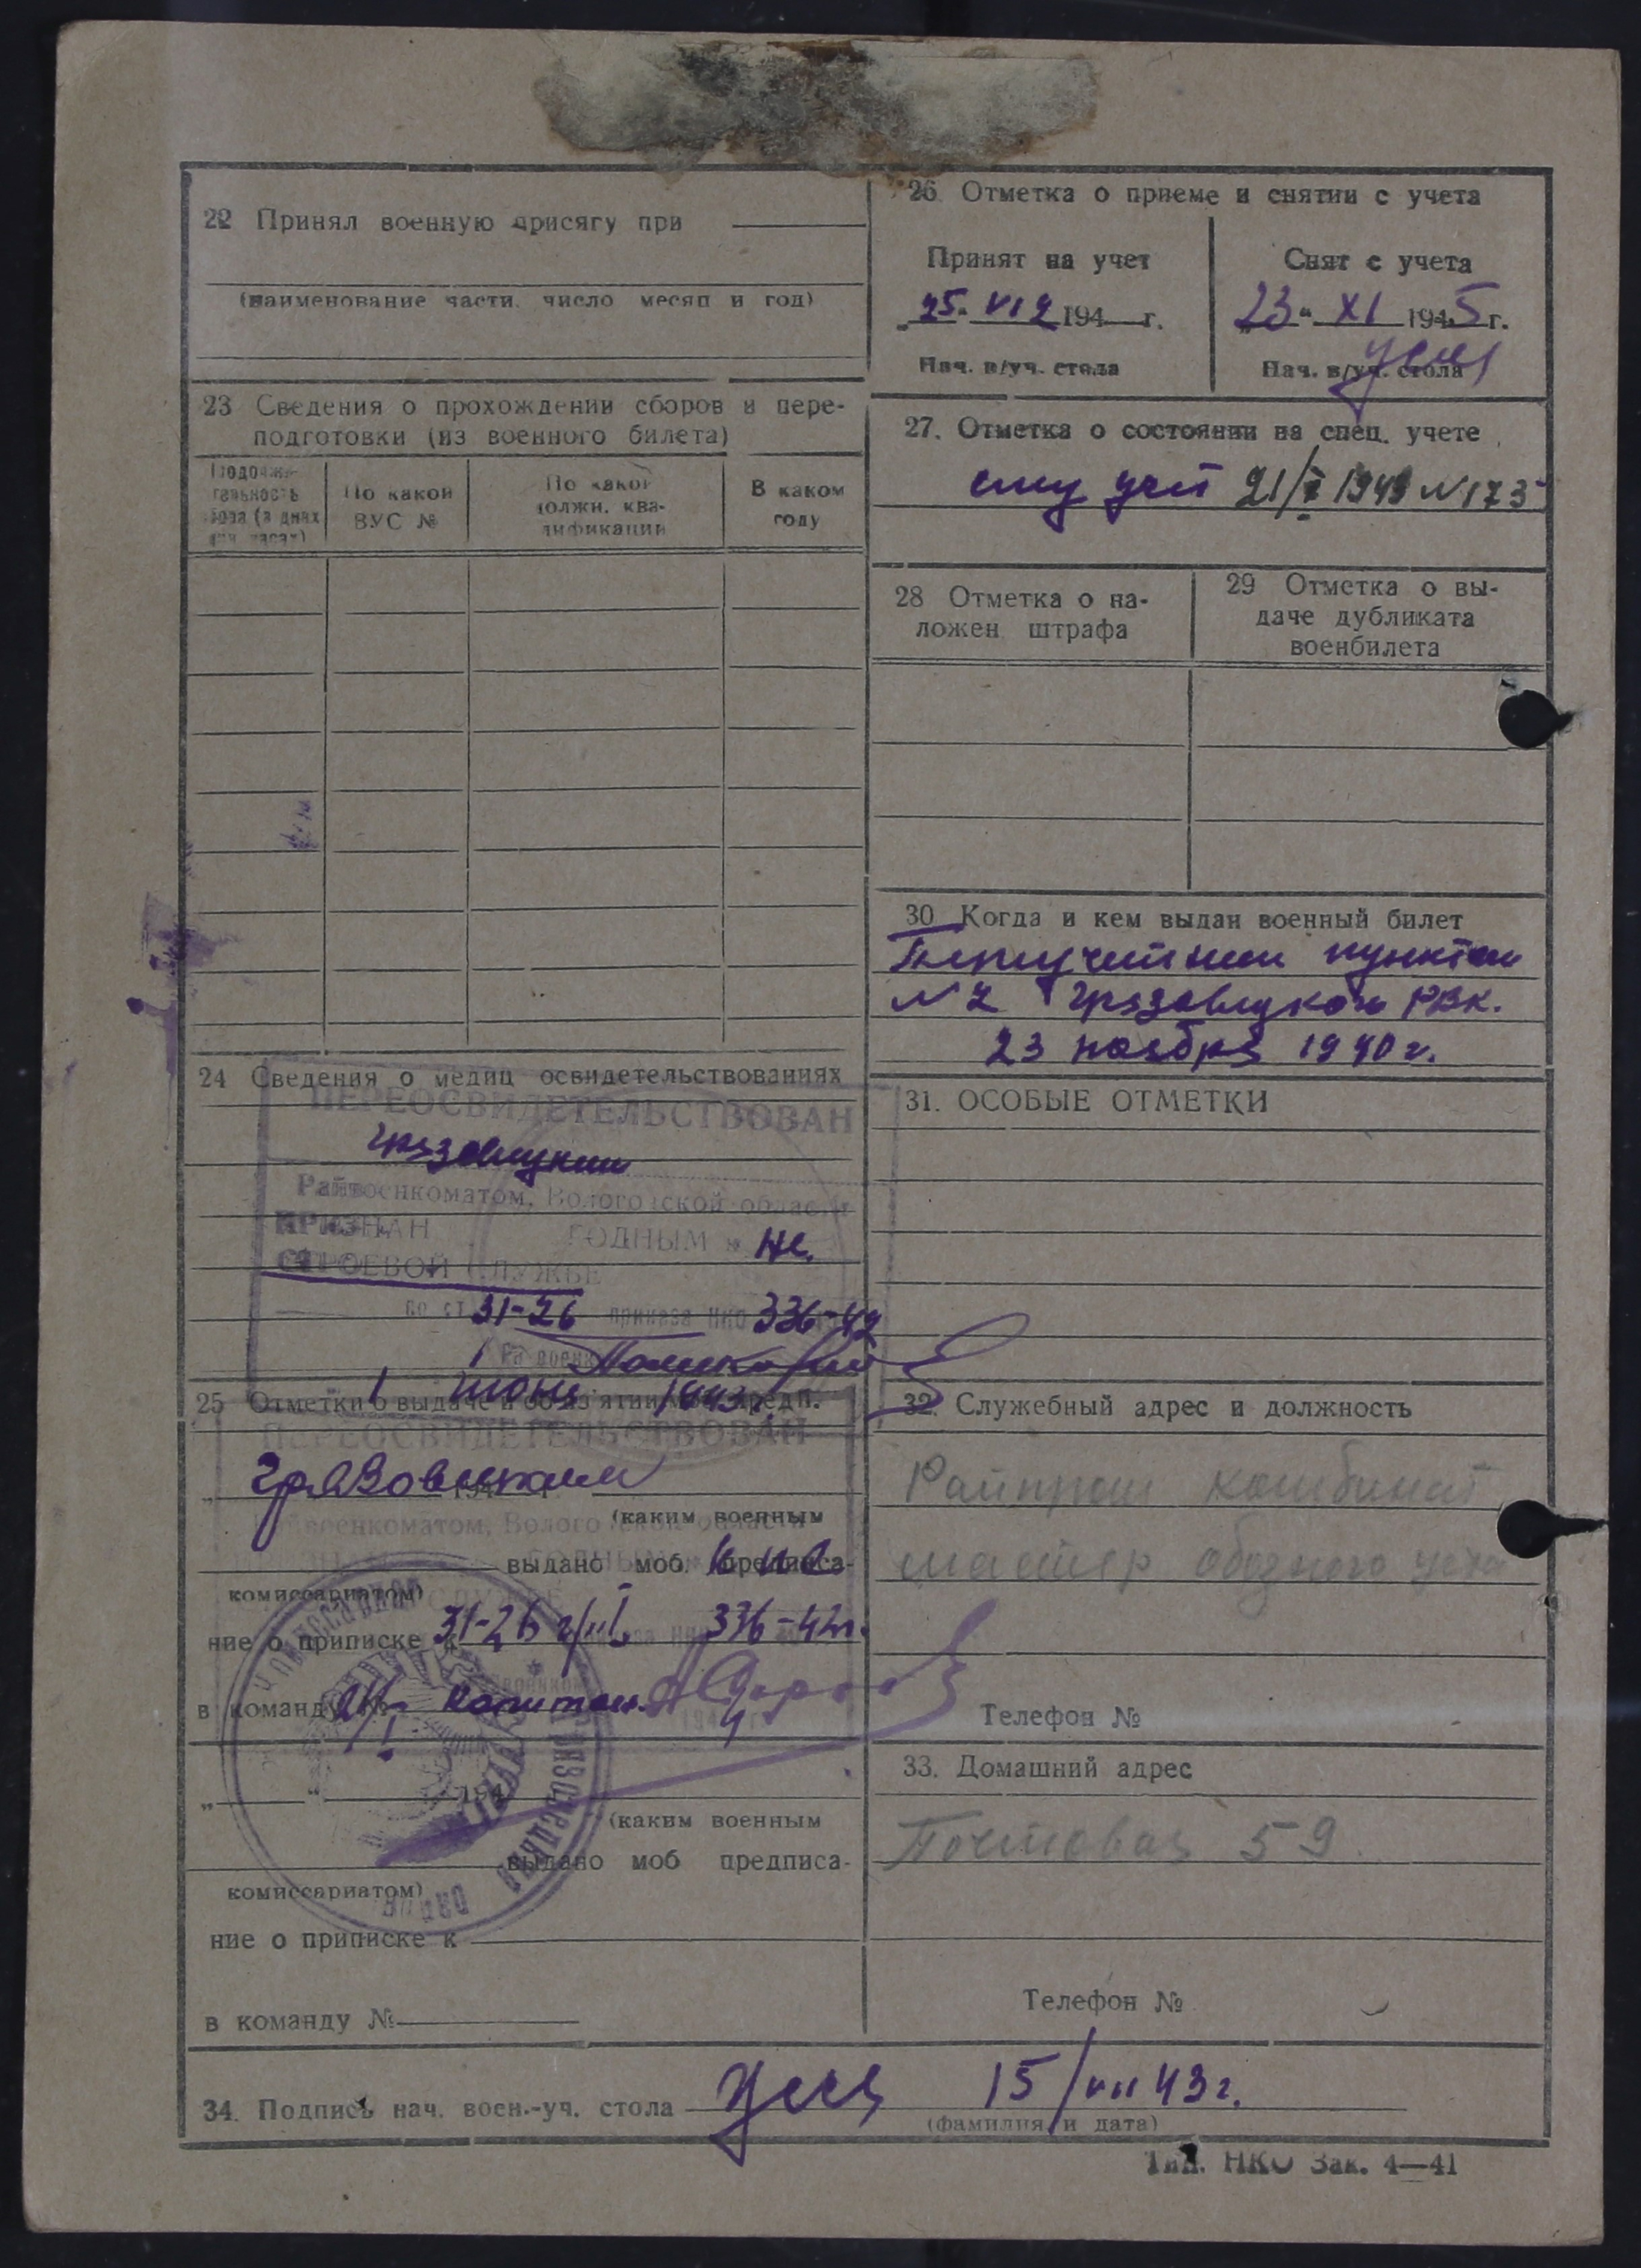 22 Принял военную присягу при
(наименование части, число месяц и год)
23 Сведения о прохождении сборов и пере-
подготовки (из военного билета)
По какой ВУС №
По какой должн. ква-
лификации
В каком году
24 Сведения о медиц освидетельствованиях
ПЕРЕОСВИДЕТЕЛЬСТВОВАН
Грязовецким
Райвоенкоматом, Вологодской области
ПРИЗНАН ГОДНЫМ к не
СТРОЕВОЙ СЛУЖБЕ
по ст 31-26 приказа НКО 336-42
1 июня 1943
25 Отметки о выдаче и об из'ятии моб предп.
ПЕРЕОСВИДЕТЕЛЬСТВОВАН
Грязовецким
194
(каким военным
Райвоенкоматом, Вологодской области
выдано моб. предписа-
комиссариатом)
ние о приписке к 31-26 336-42г.
в команду № капитан
194
(каким военным
выдано моб предписа-
комиссариатом)
ние о приписке к
в команду №
26 Отметка о приеме и снятии с учета
Принят на учет
"25" VII 194 г.
Нач. в/уч. стола
Снят с учета
"23" XI 1945 г.
Нач. в/уч. стола
27. Отметка о состоянии на спец. учете
спец учет 21/I 1943 N 173
28 Отметка о на-
ложен. штрафа
29 Отметка о вы-
даче дубликата
военбилета
30 Когда и кем выдан военный билет
пунктом
N 2 Грязовецкого РВК.
23 ноября 1940 г.
31. ОСОБЫЕ ОТМЕТКИ
32. Служебный адрес и должность
Райпром комбинат
мастер ободного цеха
Телефон №
33. Домашний адрес
Почтовая 59
Телефон №
34. Подпись нач. воен.-уч. стола 15/VII 43 г.
(фамилия и дата)
Тип. НКО Зак. 4—41